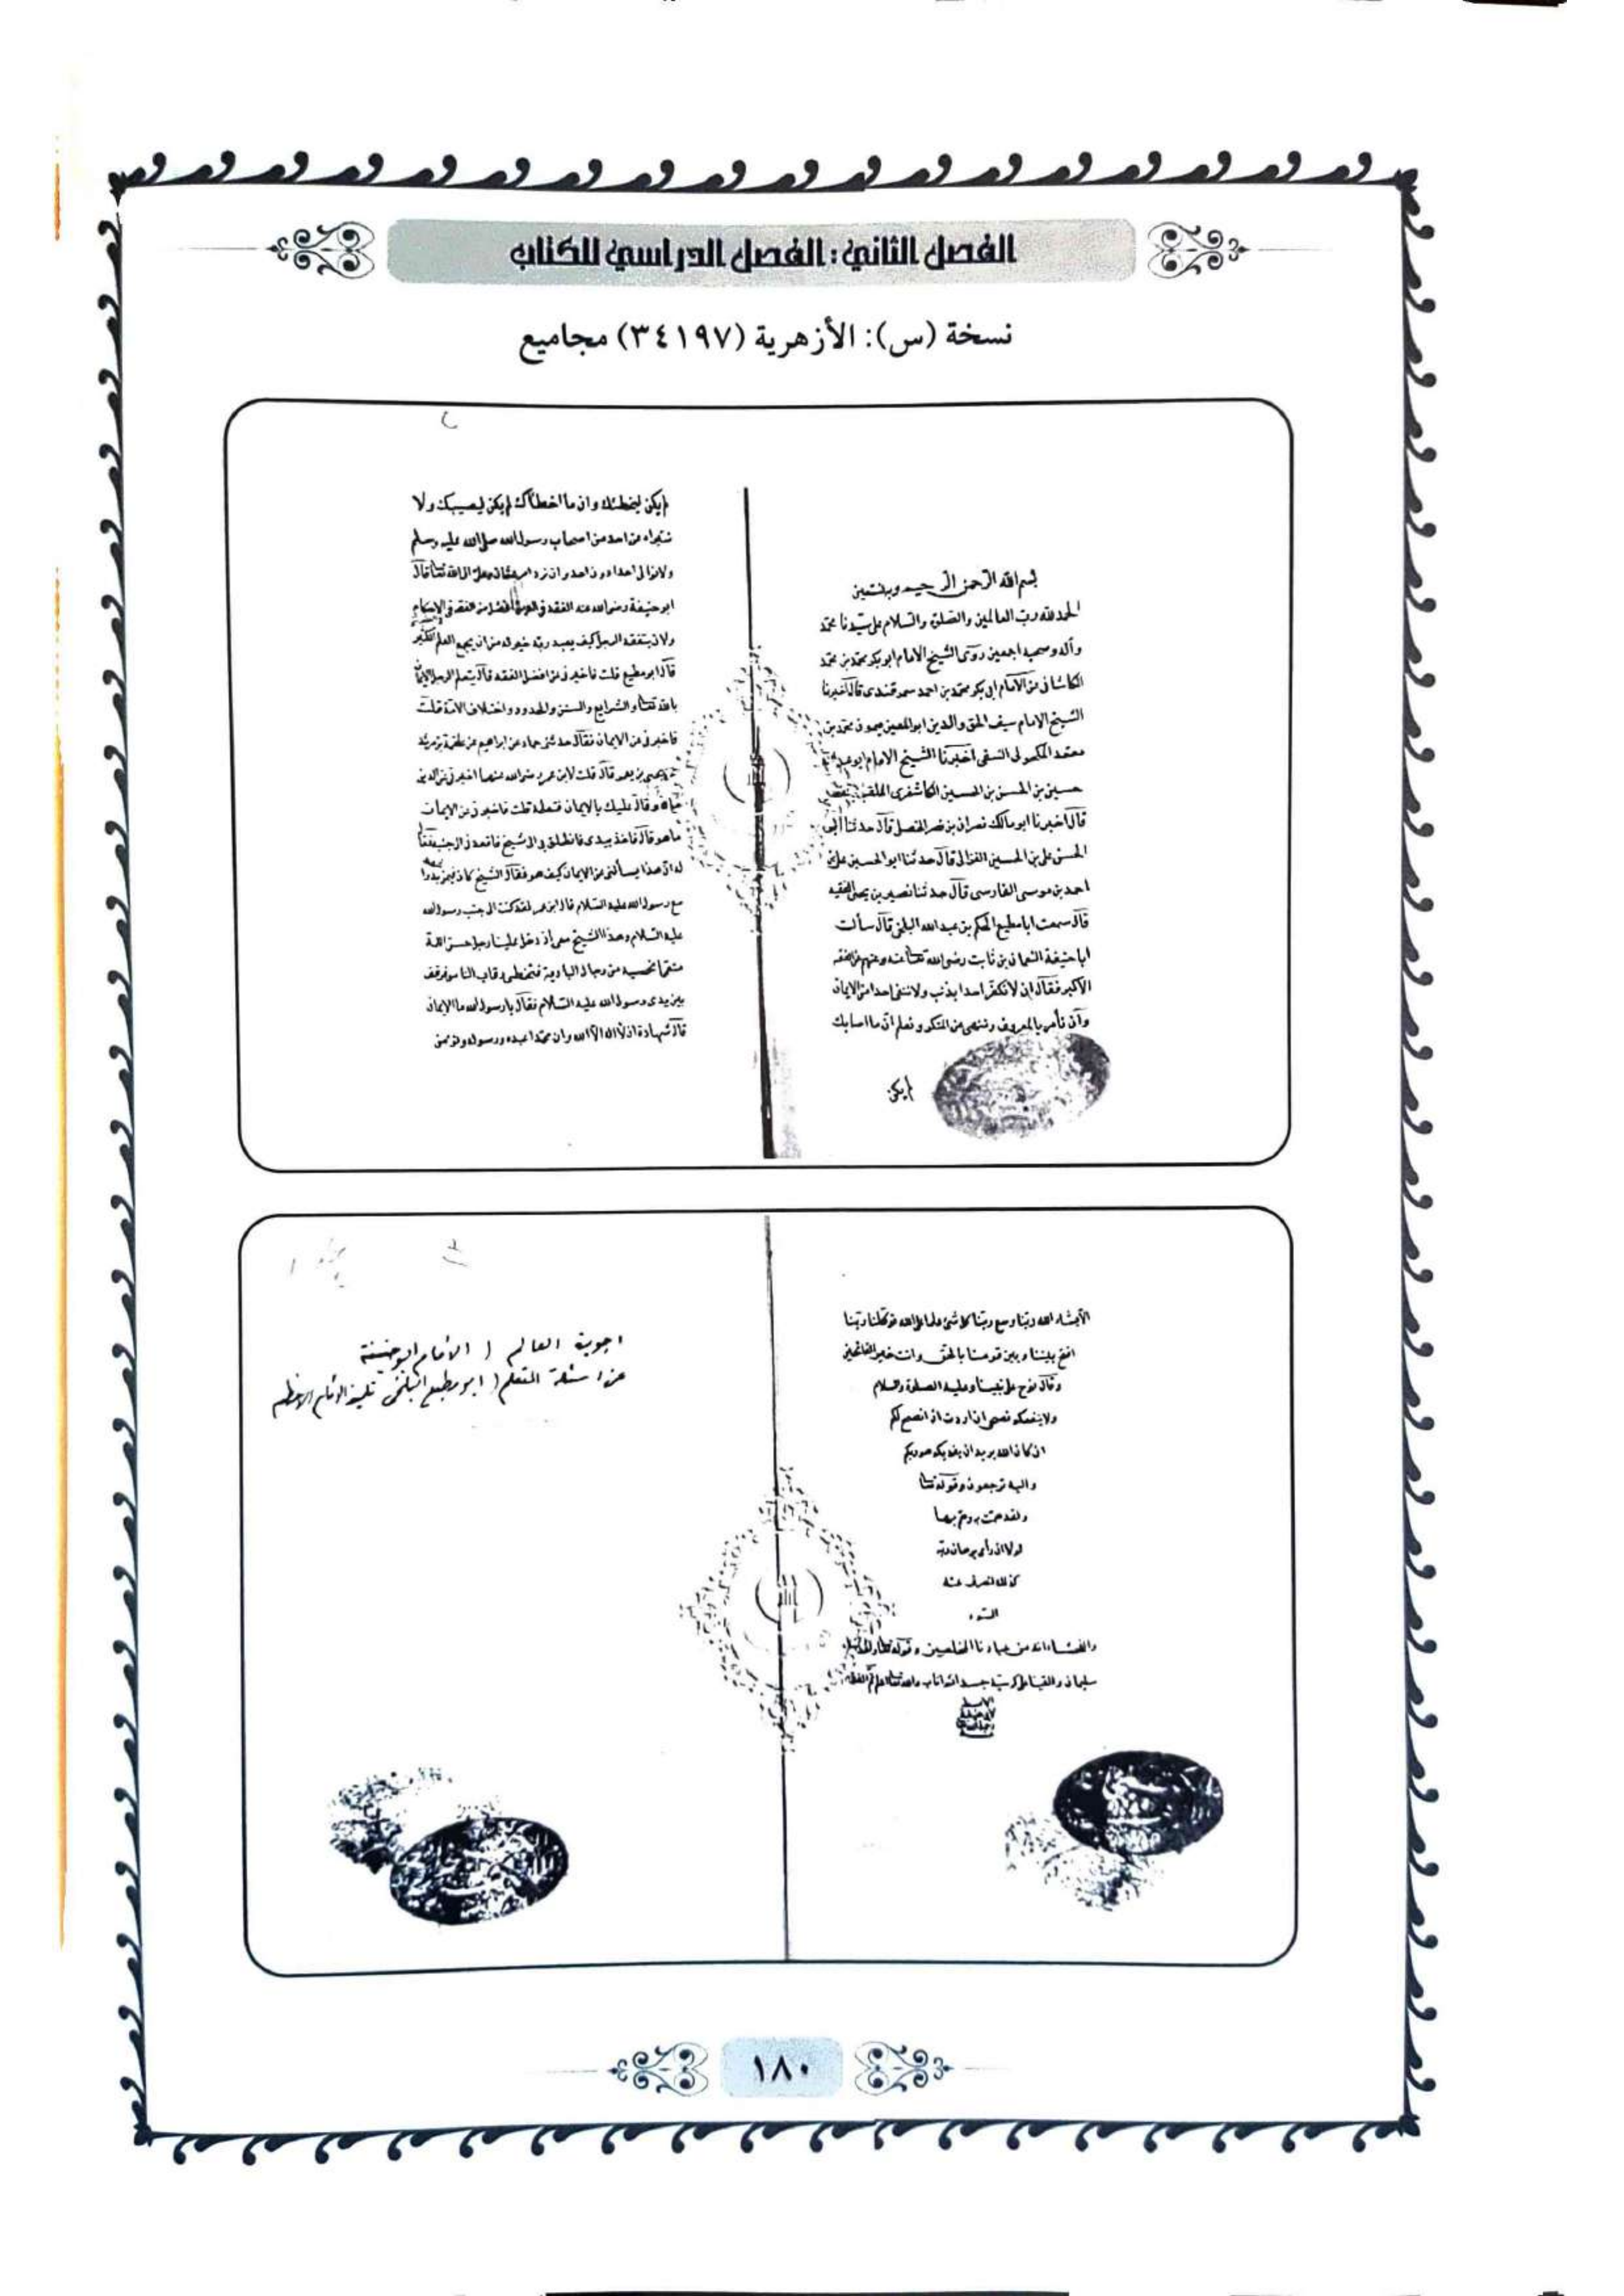 الفصل الثاني: الفصل الدراسي للكتاب
نسخة (س): الأزهرية (٣٤١٩٧) مجاميع
بسم الله الرحمن الرحيم وبه نستعين
الحمد لله رب العالمين والصلوة والسلام على سيدنا محمد
وآله وصحبه اجمعين روى الشيخ الامام ابو بكر محمد بن محمد
الكاشاني عن الامام ابى بكر محمد بن احمد سمرقندى قال اخبرنا
الشيخ الامام سيف الحق والدين ابو المعين ميمون بن محمد بن
معتمد المكحولى النسفى اخبرنا الشيخ الامام ابو عبد الله
حسين بن الحسن بن الحسين الكاشغرى الملقب
قال اخبرنا ابو مالك نصران بن نصر الختلى قال حدثنا ابى
الحسن على بن الحسين الغزال قال حدثنا ابو الحسين على بن
احمد بن موسى الفارسى قال حدثنا نصير بن يحيى الفقيه
قال سمعت ابا مطيع الحكم بن عبد الله البلخى قال سألت
ابا حنيفة النعمان بن ثابت رضى الله تعالى عنه وعنهم عن الفقه
الاكبر فقال ان لا تكفر احدا بذنب ولا تنفى احدا من الايمان
وان تأمر بالمعروف وتنهى عن المنكر وتعلم ان ما اصابك
لم يكن
لم يكن ليخطئك وان ما اخطأك لم يكن ليصيبك ولا
تتبراء من احد من اصحاب رسول الله صلى الله عليه وسلم
ولا توالى احدا دون احد وان ترد امر عثمان وعلى الى الله تعالى قال
ابو حنيفة رضى الله عنه الفقه فى الدين افضل من الفقه فى الاحكام
ولان يتفقه الرجل كيف يعبد ربه خير له من ان يجمع العلم الكثير
قال ابو مطيع قلت فاخبرنى عن افضل الفقه قال يتعلم الرجل الايمان
بالله تعالى والشرايع والسنن والحدود واختلاف الامة قلت
فاخبرنى عن الايمان فقال حدثنى حماد عن ابراهيم عن علقمة بن مرثد
عن يحيى بن يعمر قال قلت لابن عمر رضى الله عنهما اخبرنى عن الدين
ما هو قال عليك بالايمان فتعلمه قلت فاخبرنى عن الايمان
ما هو قال فاخذ بيدى فانطلق بى الى شيخ فاقعدنى الى جنبه فقال
له ان هذا يسألنى عن الايمان كيف هو فقال الشيخ كان فيمن شهد بدرا
مع رسول الله عليه السلام قال ابن عمر لقد كنت الى جنب رسول الله
عليه السلام وهذا الشيخ معى اذ دخل علينا رجل حسن اللمة
متعمما نحسبه من رجال البادية فتخطى رقاب الناس فوقف
بين يدى رسول الله عليه السلام فقال يا رسول الله ما الايمان
قال شهادة ان لا اله الا الله وان محمدا عبده ورسوله وتؤمن
الا يشاء الله ربنا وسع ربنا كل شئ علما على الله توكلنا ربنا
افتح بيننا وبين قومنا بالحق وانت خير الفاتحين
وقال نوح على نبينا وعليه الصلوة والسلام
ولا ينفعكم نصحى ان اردت ان انصح لكم
ان كان الله يريد ان يغويكم هو ربكم
واليه ترجعون وقوله تعالى
ولقد همت به وهم بها
لولا ان رأى برهان ربه
كذلك لنصرف عنه
السوء
والفحشاء انه من عبادنا المخلصين وقوله تعالى ولقد فتنا
سليمان والقينا على كرسيه جسدا ثم اناب والله تعالى اعلم
اجوبة العالم ( الامام ابو حنيفة
عن اسئلة المتعلم ( ابو مطيع البلخى تلميذ الامام الاعظم
١٨٠